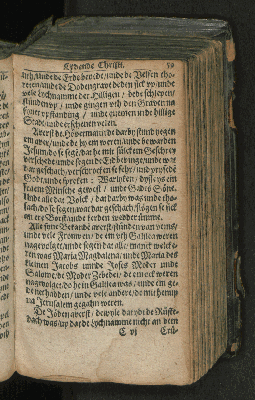 Lydende Christi. 59
uth / unde de Erde bevede / unde de Velsen
unde de Dodengrave deden sick up / unde
vele Lychnamme der Hilligen / de
stünden up / unde gingen uth den Graven na
syner upstandung / unde quemen in de hillige
Stadt / unde erschenen velen.
Averst de Hövetman de darby stund jegen
em aver / unde de by em weren / unde bewarden
Jesum / do se sege / dat he mit sülckem Geschrey
vorschede / unde segen de Erdbevinge / unde wat
dar geschach / vorschrocken se sehr / unde
Godt / unde spreken: Warliken / dysse ys ein
fraem Minsche gewest / unde Gades Söne.
Unde alle dat Volck / dat darby was unde tho-
sach / do se segen wat dar geschach / slögen se sick
an ere Borst / unde kerden wedder ümme.
Alle syne Bekande averst stünden van verns /
unde vele Frouwen / de em uth Galilea weren
nagevolget / unde segen dat alle / manck welcke-
ren was Maria Magdalena / unde Maria des
kleinen Jacobs unde Joses Moder unde
Salome / de Moder Zebedei / de em ock weren
nagevolget / do he in Galilea was / unde em ge-
denet hadden / unde vele andere / de mit em up
na Jerusalem gegahn weren.
De Jöden averst / dewyle dat de Rüste-
dach was / up dat de Lychnamme nicht an dem
C vj Crü-